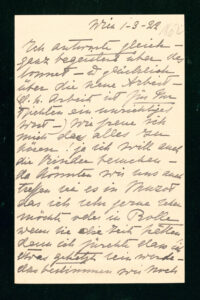 Wien 1-3-22
Ich antworte gleich -
ganz begeistert über das
Sonnet - & glücklich
über die neue Arbeit -
d. h. Arbeit ist für
Dichten ein unrichtiges
Wort - Wie freue ich
mich das alles zu
hören - ja ich will auch
die Kinder besuchen -
da könnten wir uns auch
treffen sei es in Muzot
das ich sehr gerne sehen
möchte oder in Rolle
wenn Sie die Zeit hätten
denn ich fürchte dass ich
etwas gehetzt sein werde -
das bestimmen wir noch